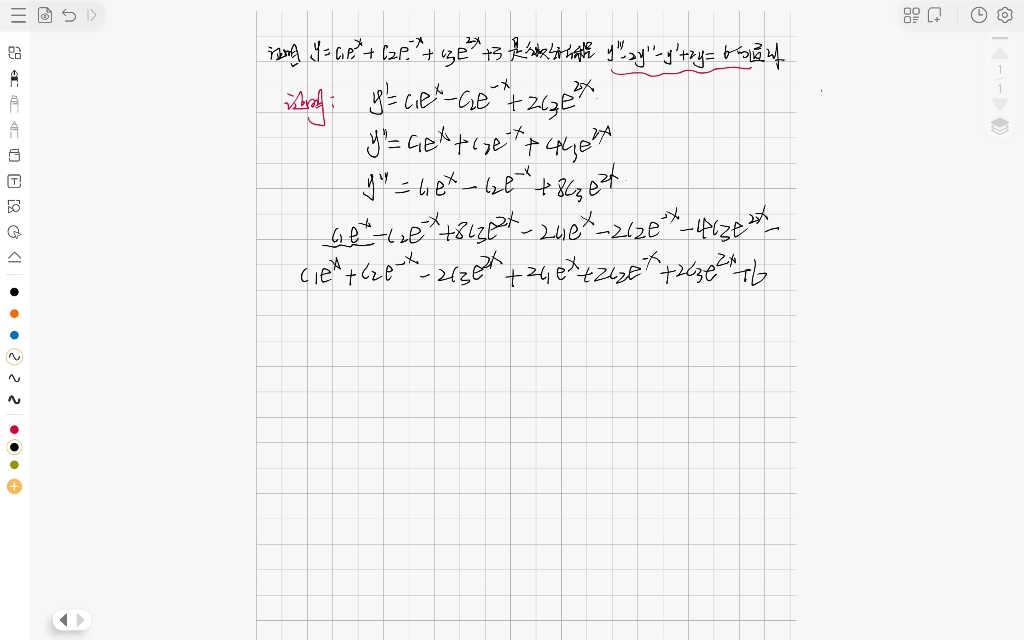 证明 y=c₁eˣ+c₂e⁻ˣ+c₃e²ˣ+3 是微分方程 y'''-2y''-y'+2y=6的通解
证明: y'=c₁eˣ-c₂e⁻ˣ+2c₃e²ˣ
y''=c₁eˣ+c₂e⁻ˣ+4c₃e²ˣ
y'''=c₁eˣ-c₂e⁻ˣ+8c₃e²ˣ
c₁eˣ-c₂e⁻ˣ+8c₃e²ˣ-2c₁eˣ-2c₂e⁻ˣ-4c₃e²ˣ-
c₁eˣ+c₂e⁻ˣ-2c₃e²ˣ+2c₁eˣ+2c₂e⁻ˣ+2c₃e²ˣ+6
1
1